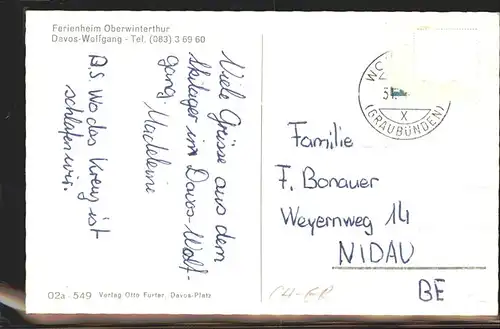 Ferienheim Oberwinterthur
Davos-Wolfgang - Tel. (083) 3 69 60
Viele Grüsse aus dem
Skilager im Davos-Wolf-
gang. Madeleine
P.S. Wo das Kreuz ist
schlafen wir.
02a - 549 Verlag Otto Furter, Davos-Platz
X
(GRAUBÜNDEN)
Familie
F. Bonauer
Weyernweg 14
NIDAU
BE
CH-GR